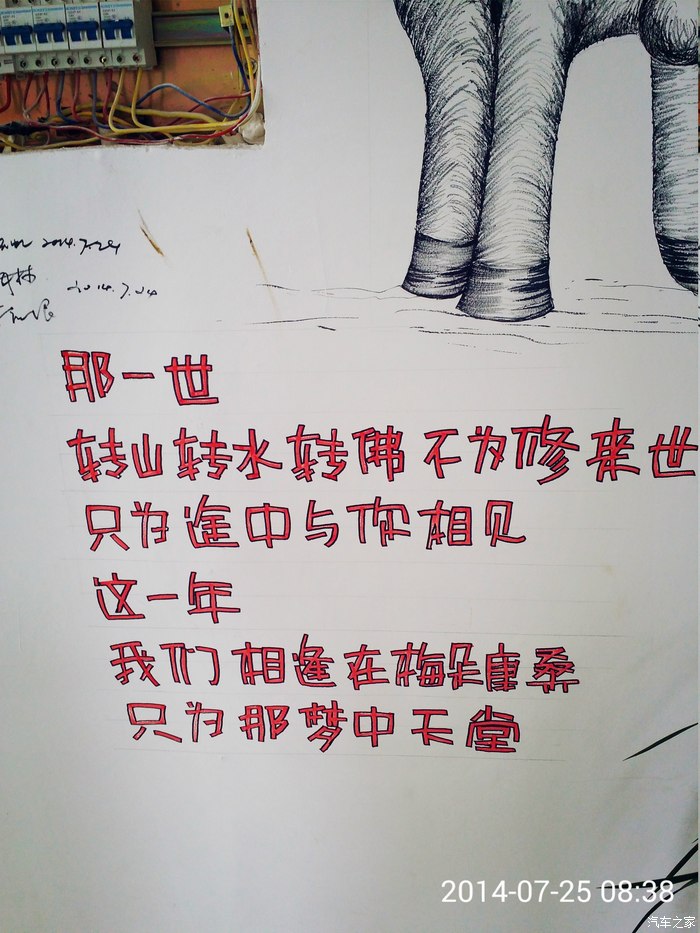 2014.7.24
2014.7.24
那一世
转山转水转佛不为修来世
只为途中与你相见
这一年
我们相逢在梅朵康桑
只为那梦中天堂
2014-07-25 08:38
汽车之家